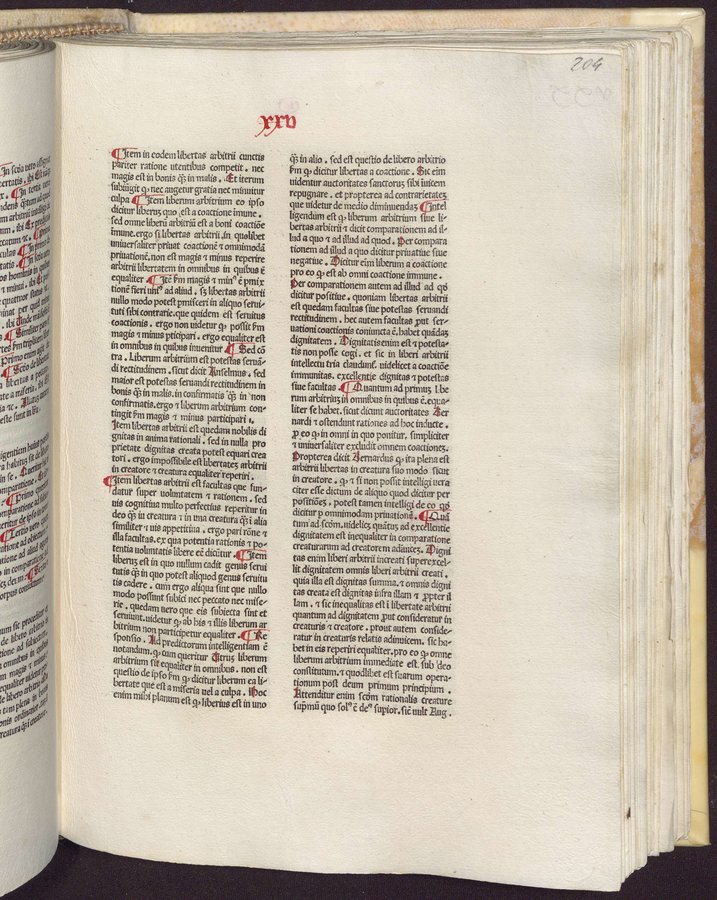 204
xxv
Item in eodem libertas arbitrii cunctis
pariter ratione utentibus competit . nec
magis est in bonis q̃ in malis . Et iterum
subiūgit ꝙ nec augetur gratia nec minuitur
culpa . Item liberum arbitrium eo ipso
dicitur liberuʒ quo est a coactione imune .
sed omne liberū arbitriū est a boni coactiōe
imune. ergo si libertas arbitrii in quolibet
uniuersaliter priuat coactionē ⁊ omnimodā
priuationē. non est magis ⁊ minus reperire
arbitrii libertatem in omnibus in quibus ē
equaliter Itē fm magis ⁊ minꝰ ē pmix
tionē fieri unꝰ ad aliud . sʒ libertas arbitrii
nullo modo potest pmisceri in aliquo serui/
tuti sibi contrarie. que quidem est seruitus
coactionis . ergo non uidetur ꝙ possit fm
magis ⁊ minus pticipari . ergo equaliter est
in omnibus in quibus inuenitur Sed cō
tra . Liberum arbitrium est potestas seruā/
di rectitudinem . sicut dicit Anselmus . sed
maior est potestas seruandi rectitudinem in
bonis q̃ in malis. in confirmatis q̃ in non
confirmatis. ergo ⁊ liberum arbitrium con/
tingit fm magis ⁊ minus participari .
Item libertas arbitrii est quedam nobilis di
gnitas in anima rationali . sed in nulla pro
prietate dignitas creata potest equari crea
tori . ergo impossibile est libertateʒ arbitrii
in creatore ⁊ creatura equaliter reperiri .
Item libertas arbitrii est facultas que fun/
datur super uoluntatem ⁊ rationem . sed
uis cognitiua multo perfectius reperitur in
deo q̃ in creatura ⁊ in una creatura q̃ ī alia
similiter ⁊ uis appetitiua . ergo pari rōne ⁊
illa facultas. ex qua potentia rationis ⁊ po/
tentia uoluntatis libere eē dicūtur . Item
liberuʒ est in quo nullum cadit genus serui
tutis q̃ in quo potest aliquod genus seruitu
tis cadere . cum ergo aliqua sint que nullo
modo possunt subici nec peccato nec mise/
rie . quedam uero que eis subiecta sunt et
seruiunt. uidetur ꝙ ab his ⁊ illis liberum ar
bitrium non participetur equaliter . Re
sponsio . Ad predictorum intelligentiam ē
notandum . ꝙ cum queritur Utruʒ liberum
arbitrium sit equaliter in omnibus . non est
questio de ipso fm ꝙ dicitur liberum ea li/
bertate que est a miseria uel a culpa . Hoc
enim mihi planum est ꝙ liberius est in uno
q̃ in alio . sed est questio de libero arbitrio
fm ꝙ dicitur libertas a coactione . Sic eim
uidentur auctoritates sanctoruʒ sibi īuicem
repugnare . et propterea ad contrarietateʒ
que uidetur de medio diminuendaʒ intel
ligendum est ꝙ liberum arbitrium siue li/
bertas arbitrii ⁊ dicit comparationem ad il/
lud a quo ⁊ ad illud ad quod . Per compara
tionem ad illud a quo dicitur priuatiue siue
negatiue . Dicitur eim liberum a coactione
pro eo ꝙ est ab omni coactione immune .
Per comparationem autem ad illud ad qd̄
dicitur positiue . quoniam libertas arbitrii
est quedam facultas siue potestas seruandi
rectitudinem . hec autem facultas put ser/
uationi coactionis coniuncta ē. habet quādaʒ
dignitatem . Dignitatis enim est ⁊ potesta/
tis non posse cogi . et sic in liberi arbitrii
intellectu tria claudunꝫ. videlicet a coactiōe
immunitas. excellentie dignitas ⁊ potestas
siue facultas . Quantum ad primuʒ libe
rum arbitriuʒ in omnibus in quibus ē. equa/
liter se habet. sicut dicunt auctoritates Ber
nardi ⁊ ostendunt rationes ad hoc inducte .
p eo ꝙ in omni in quo ponitur . simpliciter
⁊ uniuersaliter excludit omnem coactioneʒ.
Propterea dicit Bernardus ꝙ ita plena est
arbitrii libertas in creatura suo modo sicut
in creatore . ꝙ ⁊ si non possit intelligi uera
citer esse dictum de aliquo quod dicitur per
positiōeʒ . potest tamen intelligi de eo qd̄
dicitur p omnimodam priuationē . Quā
tum ad scd̄m. uidelicʒ quātuʒ ad excellentie
dignitatem est inequaliter in comparatione
creaturarum ad creatorem ad inuiceʒ. Digni
tas enim liberi arbitrii increati superexcel/
lit dignitatem omnis liberi arbitrii creati .
quia illa est dignitas summa. ⁊ omnis digni
tas creata est dignitas infra illam ⁊ ppter il
lam . ⁊ sic inequalitas est ī libertate arbitrii
quantum ad dignitatem put consideratur in
creaturis ⁊ creatore . prout autem conside/
ratur in creaturis relatio adinuicem . sic ha/
bet in eis reperiri equaliter. pro eo ꝙ omne
liberum arbitrium immediate est . sub deo
constitutum. ⁊ quodlibet est suarum opera/
tionum post deum primum principium .
Attenditur enim scd̄m rationalis creature
supmū quo solꝰ ē deꝰ supior. sic̄ uult Aug .